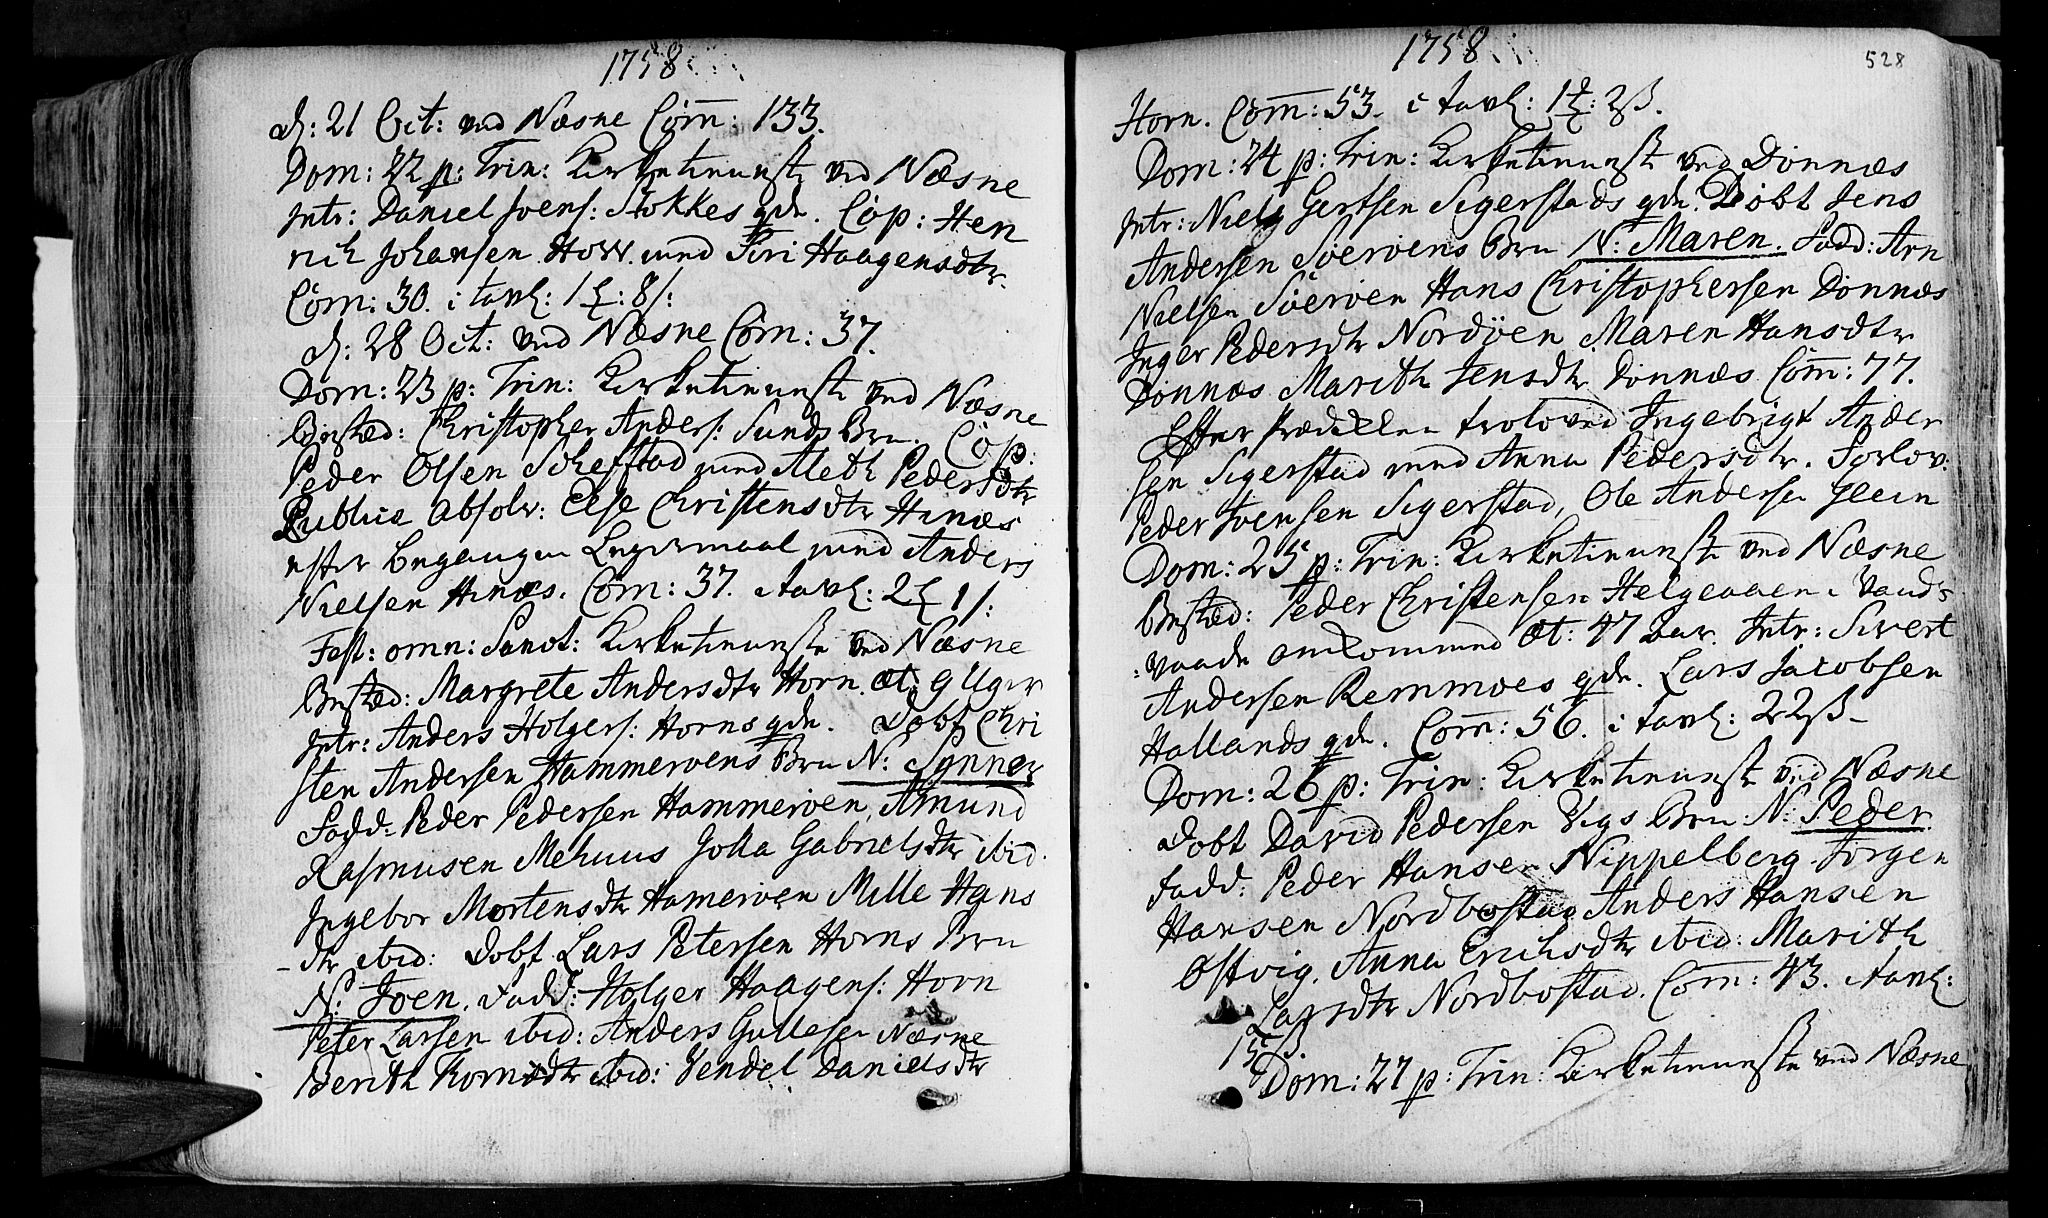 1758
d: 21 Oct: ved Næsne Com̄: 133.
Dom: 22 p: Trin: Kirketienniste ved Næsne
Intr: Daniel Joens: Stokkes qdr. Cop: Hen
rich Johansen How. med Siri Haagensdtr
Com: 30. i tavl: 1 ʒ: 8/:
d: 28 Oct: ved Næsne Com̄: 37.
Dom: 23 p: Trin: Kirketienniste ved Næsne
Begstæd: Christopher Anders: Sunds Brn. Cop:
Peder Olsen Scheffstad med Aleth Pedersdtr
Publice Absolv: Else Christensdtr Hinæs
efter begangen Legermaal med Anders
Nielsen Hinæs. Com: 37. i tavl: 2 ʒ 1/:
Fest: omn: Sanct: Kirketienniste ved Næsne
Begstæd: Margrete Andersdtr Horn. æt: 9 Uger
Intr: Anders Holgers: Horns qdr. Dobt Chri
sten Andersen Hammerøens Brn N: Synner
Fadd: Peder Pedersen Hammerøen, Amund
Rasmusen Mehuus Jolla Gabrielsdtr ibid.
Ingebor Mortensdtr Hamerøen Mille Hans
-dtr ibid: Dobt Lars Petersen Horns Brn
N: Joen. Fadd: Holger Haagens: Horn
Peter Larsen ibid: Anders Gullesen Næsne
Berith Tomesdtr ibid: Vendel Danielsdtr
1758
528
Horn. Com̄: 53. i tavl: 1 ʒ: 2ß.
Dom: 24 p: Trin: Kirketienniste ved Dønnæs
Intr: Niels Gertsen Sigerstads qdr. Døbt Jens
Andersen Søerøens Brn N: Maren. Fadd: Arn
Nielsen Søerøen Hans Christophersen Dønnæs
Inger Pedersdtr Nordøen Maren Hansdtr
Dønnæs Marith Jensdtr Dønnæs Com̄: 77.
Efter Prædiken troloved Ingebrigt Ander
sen Sigerstad med Anna Pedersdtr. Forlov:
Peder Joensen Sigerstad, Ole Andersen Glein
Dom: 25 p: Trin: Kirketienniste ved Næsne
Begstæd: Peder Christensen Helgeaaen i Vands
: vaade omkommend æt: 47 aar. Intr: Sivert
Andersen Remmoes qdr. Lars Jacobsen
Hallands qdr. Com̄: 56. i tavl: 22ß-
Dom: 26 p: Trin: Kirketienniste ved Næsne
Dobt David Pedersen Vigs Brn N: Peder
Fadd: Peder Hansen Nippelberg Jørgen
Hansen Nordbostad Anders Hansen
Ostvig. Anna Erichsdtr ibid: Marith
Larsdtr Nordbostad. Com̄: 43. i tavl:
15ß.
Dom: 27 p: Trin: Kirketienniste ved Næsne